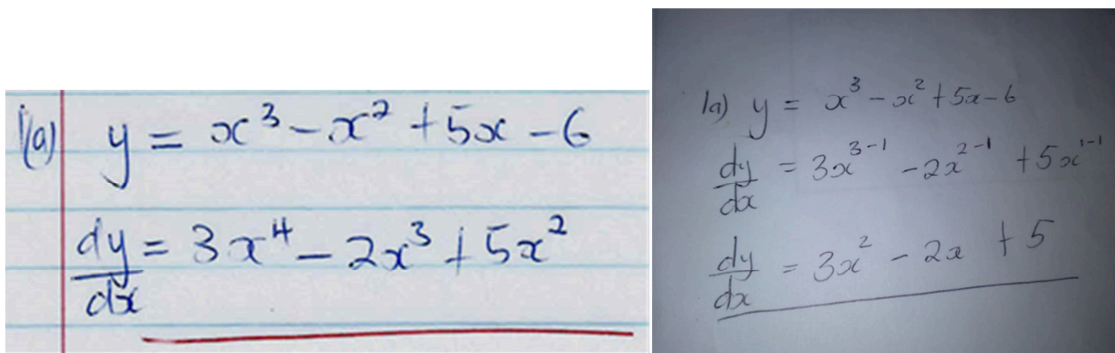 1(a) y = x³ - x² + 5x - 6
dy/dx = 3x⁴ - 2x³ + 5x²
1a) y = x³ - x² + 5x - 6
dy/dx = 3x³⁻¹ - 2x²⁻¹ + 5x¹⁻¹
dy/dx = 3x² - 2x + 5